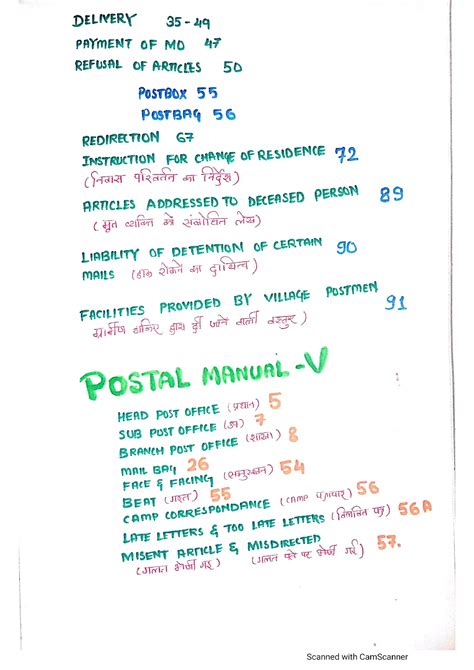 DELIVERY 35-49
PAYMENT OF MO 47
REFUSAL OF ARTICLES 50
POSTBOX 55
POSTBAG 56
REDIRECTION 67
INSTRUCTION FOR CHANGE OF RESIDENCE 72
(निवास परिवर्तन का निर्देश)
ARTICLES ADDRESSED TO DECEASED PERSON 89
(मृत व्यक्ति को संबोधित लेख)
LIABILITY OF DETENTION OF CERTAIN 90
MAILS (डाक रोकने का दायित्व)
FACILITIES PROVIDED BY VILLAGE POSTMEN 91
ग्रामीण द्वारा दी जाने वाली वस्तुए)
POSTAL MANUAL-V
HEAD POST OFFICE (प्रधान) 5
SUB POST OFFICE (उप) 7
BRANCH POST OFFICE (शाखा) 8
MAIL BAG 26
FACE & FACING 54
BEAT (गश्त) 55
CAMP CORRESPONDANCE (CAMP पत्राचार) 56
LATE LETTERS & TOO LATE LETTERS (विलंबित पत्र) 56A
MISENT ARTICLE & MISDIRECTED 57.
(गलत भेजी गई) (गलत पते पर भेजी गई)
Scanned with CamScanner